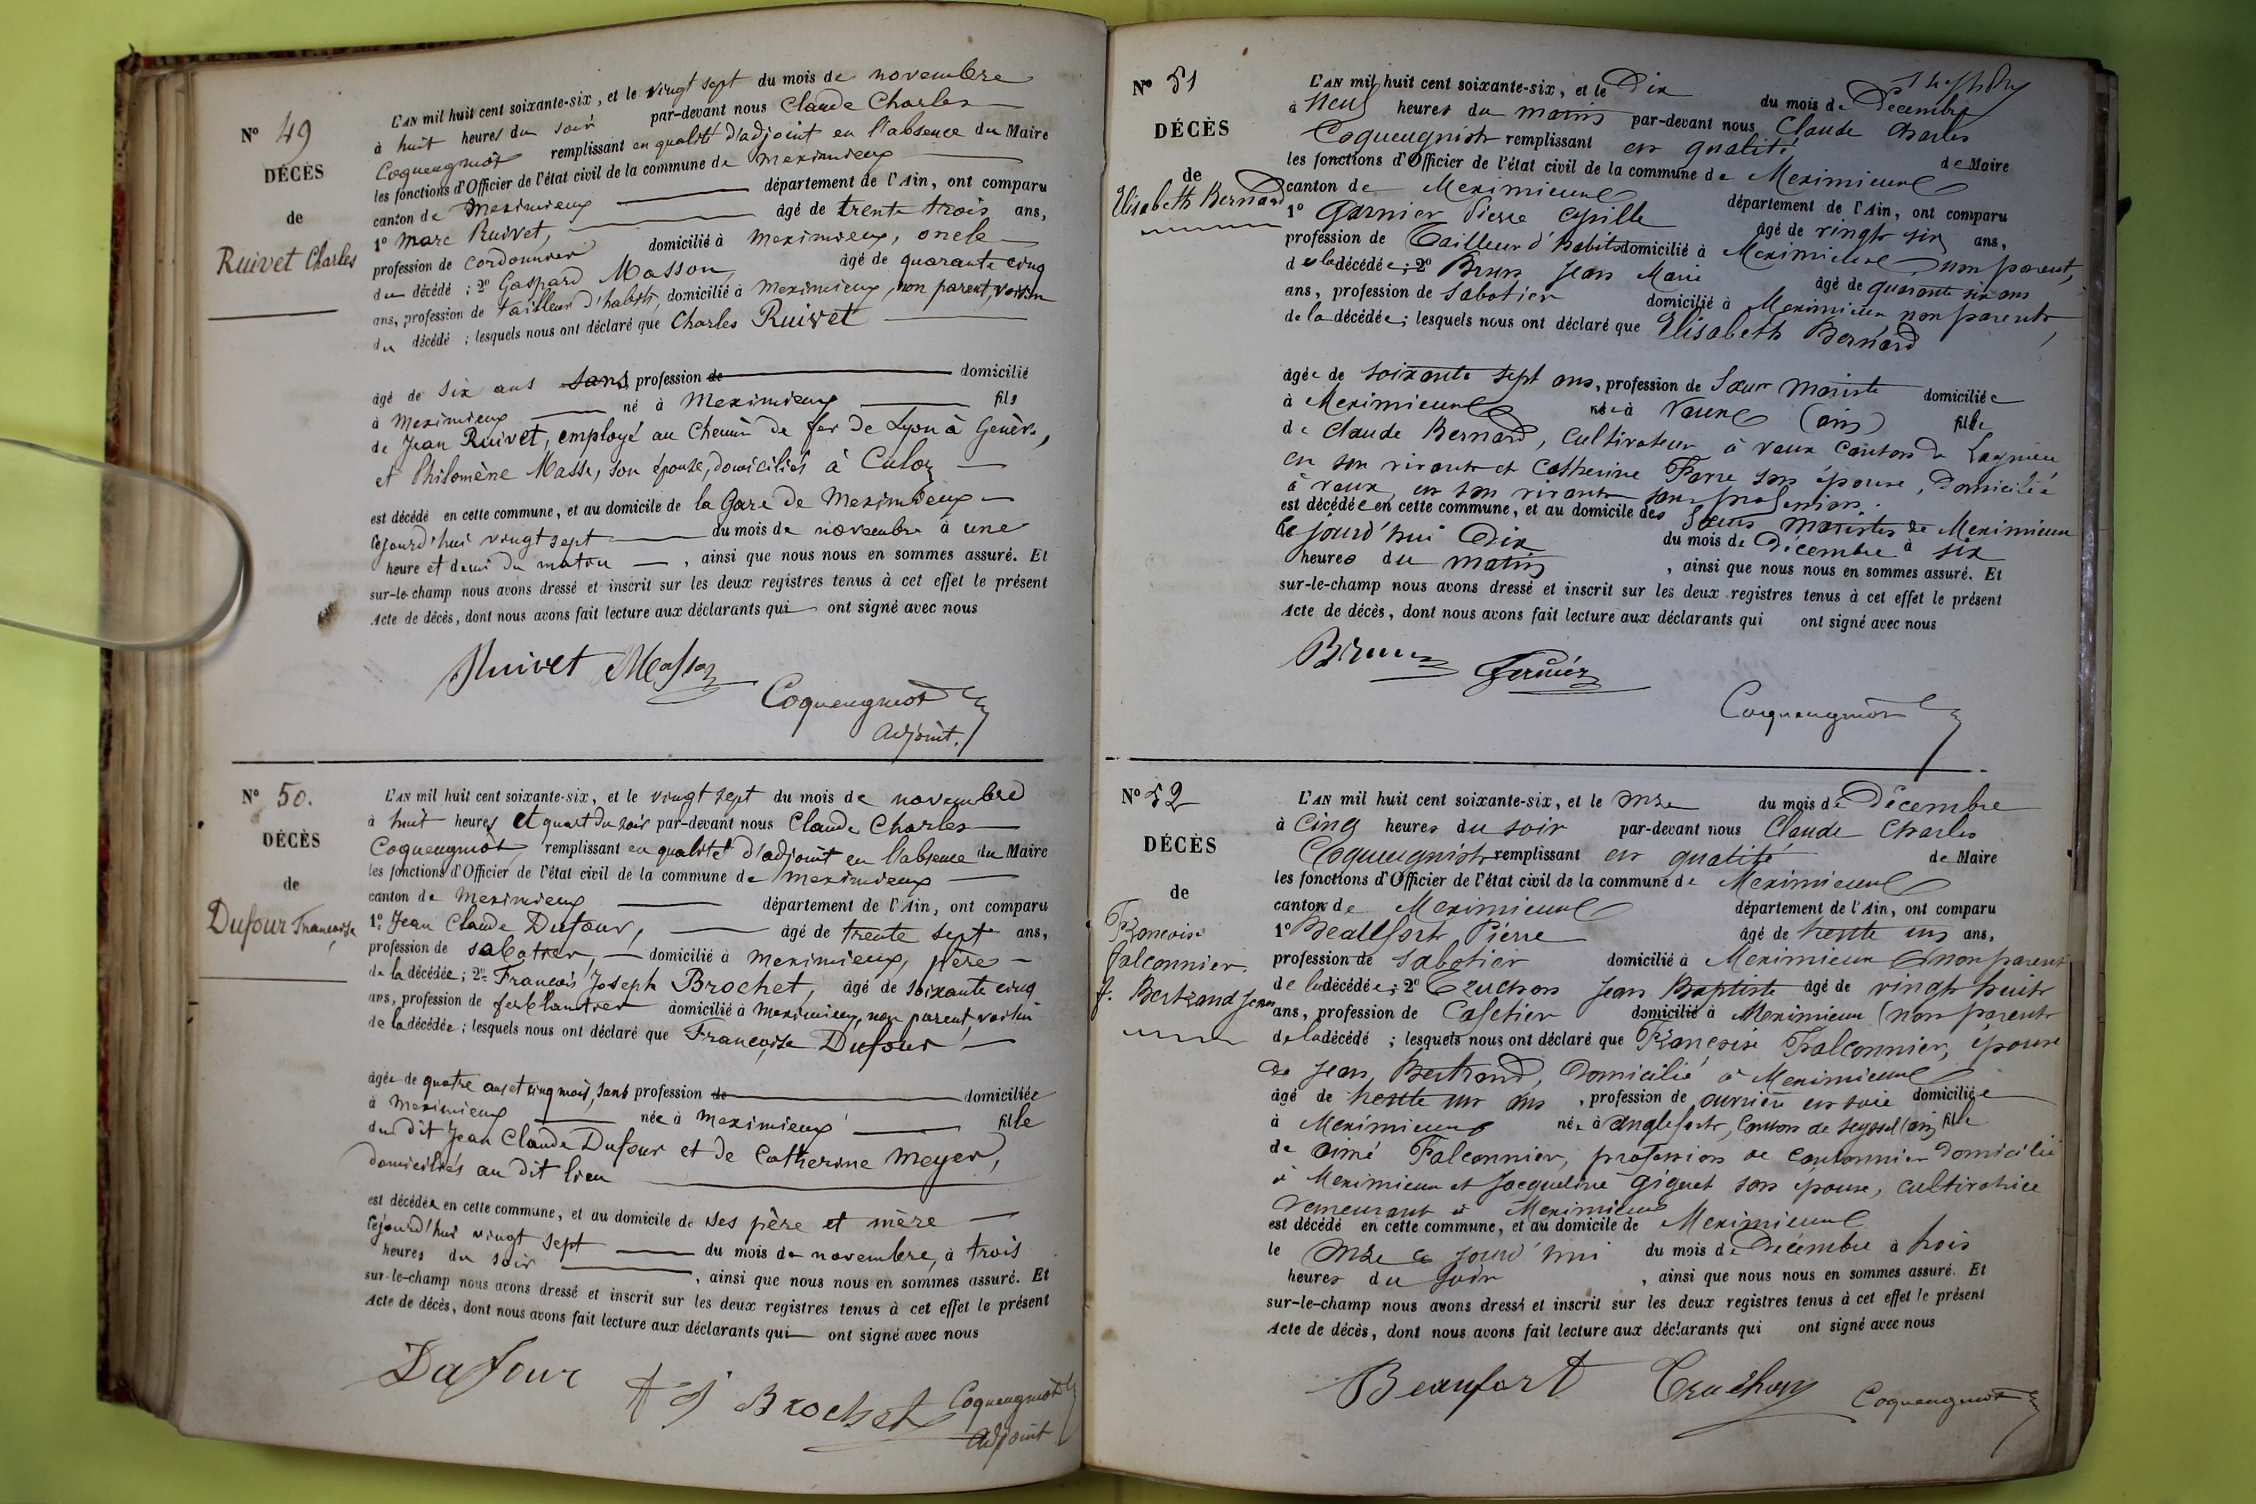 N° 49
DÉCÈS
de
Ruivet Charles
L'AN mil huit cent soixante-six, et le vingt sept du mois de novembre
à huit heures du soir par-devant nous Claude Charles
Coqueugniot remplissant en qualité d'adjoint en l'absence du Maire
les fonctions d'Officier de l'état civil de la commune de Meximieux
canton de Meximieux département de l'Ain, ont comparu
1° Marc Ruivet, âgé de trente trois ans,
profession de cordonnier domicilié à Meximieux, oncle
du décédé ; 2° Gaspard Masson, âgé de quarante cinq
ans, profession de tailleur d'habits, domicilié à Meximieux, non parent, voisin
du décédé ; lesquels nous ont déclaré que Charles Ruivet
âgé de six ans sans profession de domicilié
à Meximieux né à Meximieux fils
de Jean Ruivet, employé au chemin de fer de Lyon à Genève,
et Philomène Masse, son épouse, domiciliés à Culoz
est décédé en cette commune, et au domicile de la Gare de Meximieux
cejourd'hui vingt sept du mois de novembre à une
heure et demi du matin , ainsi que nous nous en sommes assuré. Et
sur-le-champ nous avons dressé et inscrit sur les deux registres tenus à cet effet le présent
Acte de décès, dont nous avons fait lecture aux déclarants qui ont signé avec nous
Ruivet Masson
Coqueugniot
adjoint.
N° 50.
DÉCÈS
de
Dufour Françoise
L'AN mil huit cent soixante-six, et le vingt sept du mois de novembre
à huit heures et quart du soir par-devant nous Claude Charles
Coqueugniot, remplissant en qualité d'adjoint en l'absence du Maire
les fonctions d'Officier de l'état civil de la commune de Meximieux
canton de Meximieux département de l'Ain, ont comparu
1° Jean Claude Dufour, âgé de trente sept ans,
profession de sabotier, domicilié à Meximieux, père
de la décédée ; 2° François Joseph Brochet, âgé de soixante cinq
ans, profession de ferblantier domicilié à Meximieux, non parent, voisin
de la décédée ; lesquels nous ont déclaré que Françoise Dufour
âgée de quatre ans et cinq mois, sans profession de domiciliée
à Meximieux née à Meximieux fille
du dit Jean Claude Dufour et de Catherine Meyer,
domiciliés au dit lieu
est décédée en cette commune, et au domicile de ses père et mère
cejourd'hui vingt sept du mois de novembre, à trois
heures du soir , ainsi que nous nous en sommes assuré. Et
sur-le-champ nous avons dressé et inscrit sur les deux registres tenus à cet effet le présent
Acte de décès, dont nous avons fait lecture aux déclarants qui ont signé avec nous
Dufour
Brochet
Coqueugniot
adjoint
N° 51
DÉCÈS
de
Elisabeth Bernard
L'AN mil huit cent soixante-six, et le Dix du mois de Décembre
à Neuf heures du matin par-devant nous Claude Charles
Coqueugniot remplissant en qualité de Maire
les fonctions d'Officier de l'état civil de la commune de Meximieux
canton de Meximieux département de l'Ain, ont comparu
1° Garnier Pierre Cyrille âgé de vingt six ans,
profession de Tailleur d'habits domicilié à Meximieux, non parent,
de la décédée ; 2° Brun Jean Marie âgé de quarante six ans
ans, profession de Sabotier domicilié à Meximieux non parent,
de la décédée ; lesquels nous ont déclaré que Elisabeth Bernard
âgée de soixante sept ans, profession de Sœur mariste domiciliée
à Meximieux née à Vaux (ain) fille
de Claude Bernard, cultivateur à Vaux canton de Lagnieu
en son vivant et Catherine Favre son épouse, domiciliée
à Vaux, en son vivant sans profession.
est décédée en cette commune, et au domicile des Sœurs maristes de Meximieux
le jourd'hui Dix du mois de Décembre à six
heures du matin , ainsi que nous nous en sommes assuré. Et
sur-le-champ nous avons dressé et inscrit sur les deux registres tenus à cet effet le présent
Acte de décès, dont nous avons fait lecture aux déclarants qui ont signé avec nous
Brun
Coqueugniot
N° 52
DÉCÈS
de
Françoise
Falconnier
f. Bertrand Jean
L'AN mil huit cent soixante-six, et le onze du mois de Décembre
à Cinq heures du soir par-devant nous Claude Charles
Coqueugniot remplissant en qualité de Maire
les fonctions d'Officier de l'état civil de la commune de Meximieux
canton de Meximieux département de l'Ain, ont comparu
1° Beauffort Pierre âgé de trente un ans,
profession de Sabotier domicilié à Meximieux (non parent
de la décédée ; 2° Truchon Jean Baptiste âgé de vingt huit
ans, profession de Cafetier domicilié à Meximieux (non parent
de la décédé ; lesquels nous ont déclaré que Françoise Falconnier, épouse
de Jean Bertrand, Domicilié à Meximieux
âgé de trente un ans , profession de ouvrière en soie domiciliée
à Meximieux née à Anglefort, Canton de Seyssel (ain) fille
de Aimé Falconnier, profession de Cantonnier Domicilié
à Meximieux et Jacqueline Giguet son épouse, cultivatrice
demeurant à Meximieux
est décédé en cette commune, et au domicile de Meximieux
le onze ce jourd'hui du mois de Décembre à trois
heures du soir , ainsi que nous nous en sommes assuré. Et
sur-le-champ nous avons dressé et inscrit sur les deux registres tenus à cet effet le présent
Acte de décès, dont nous avons fait lecture aux déclarants qui ont signé avec nous
Beaufort Truchon Coqueugniot